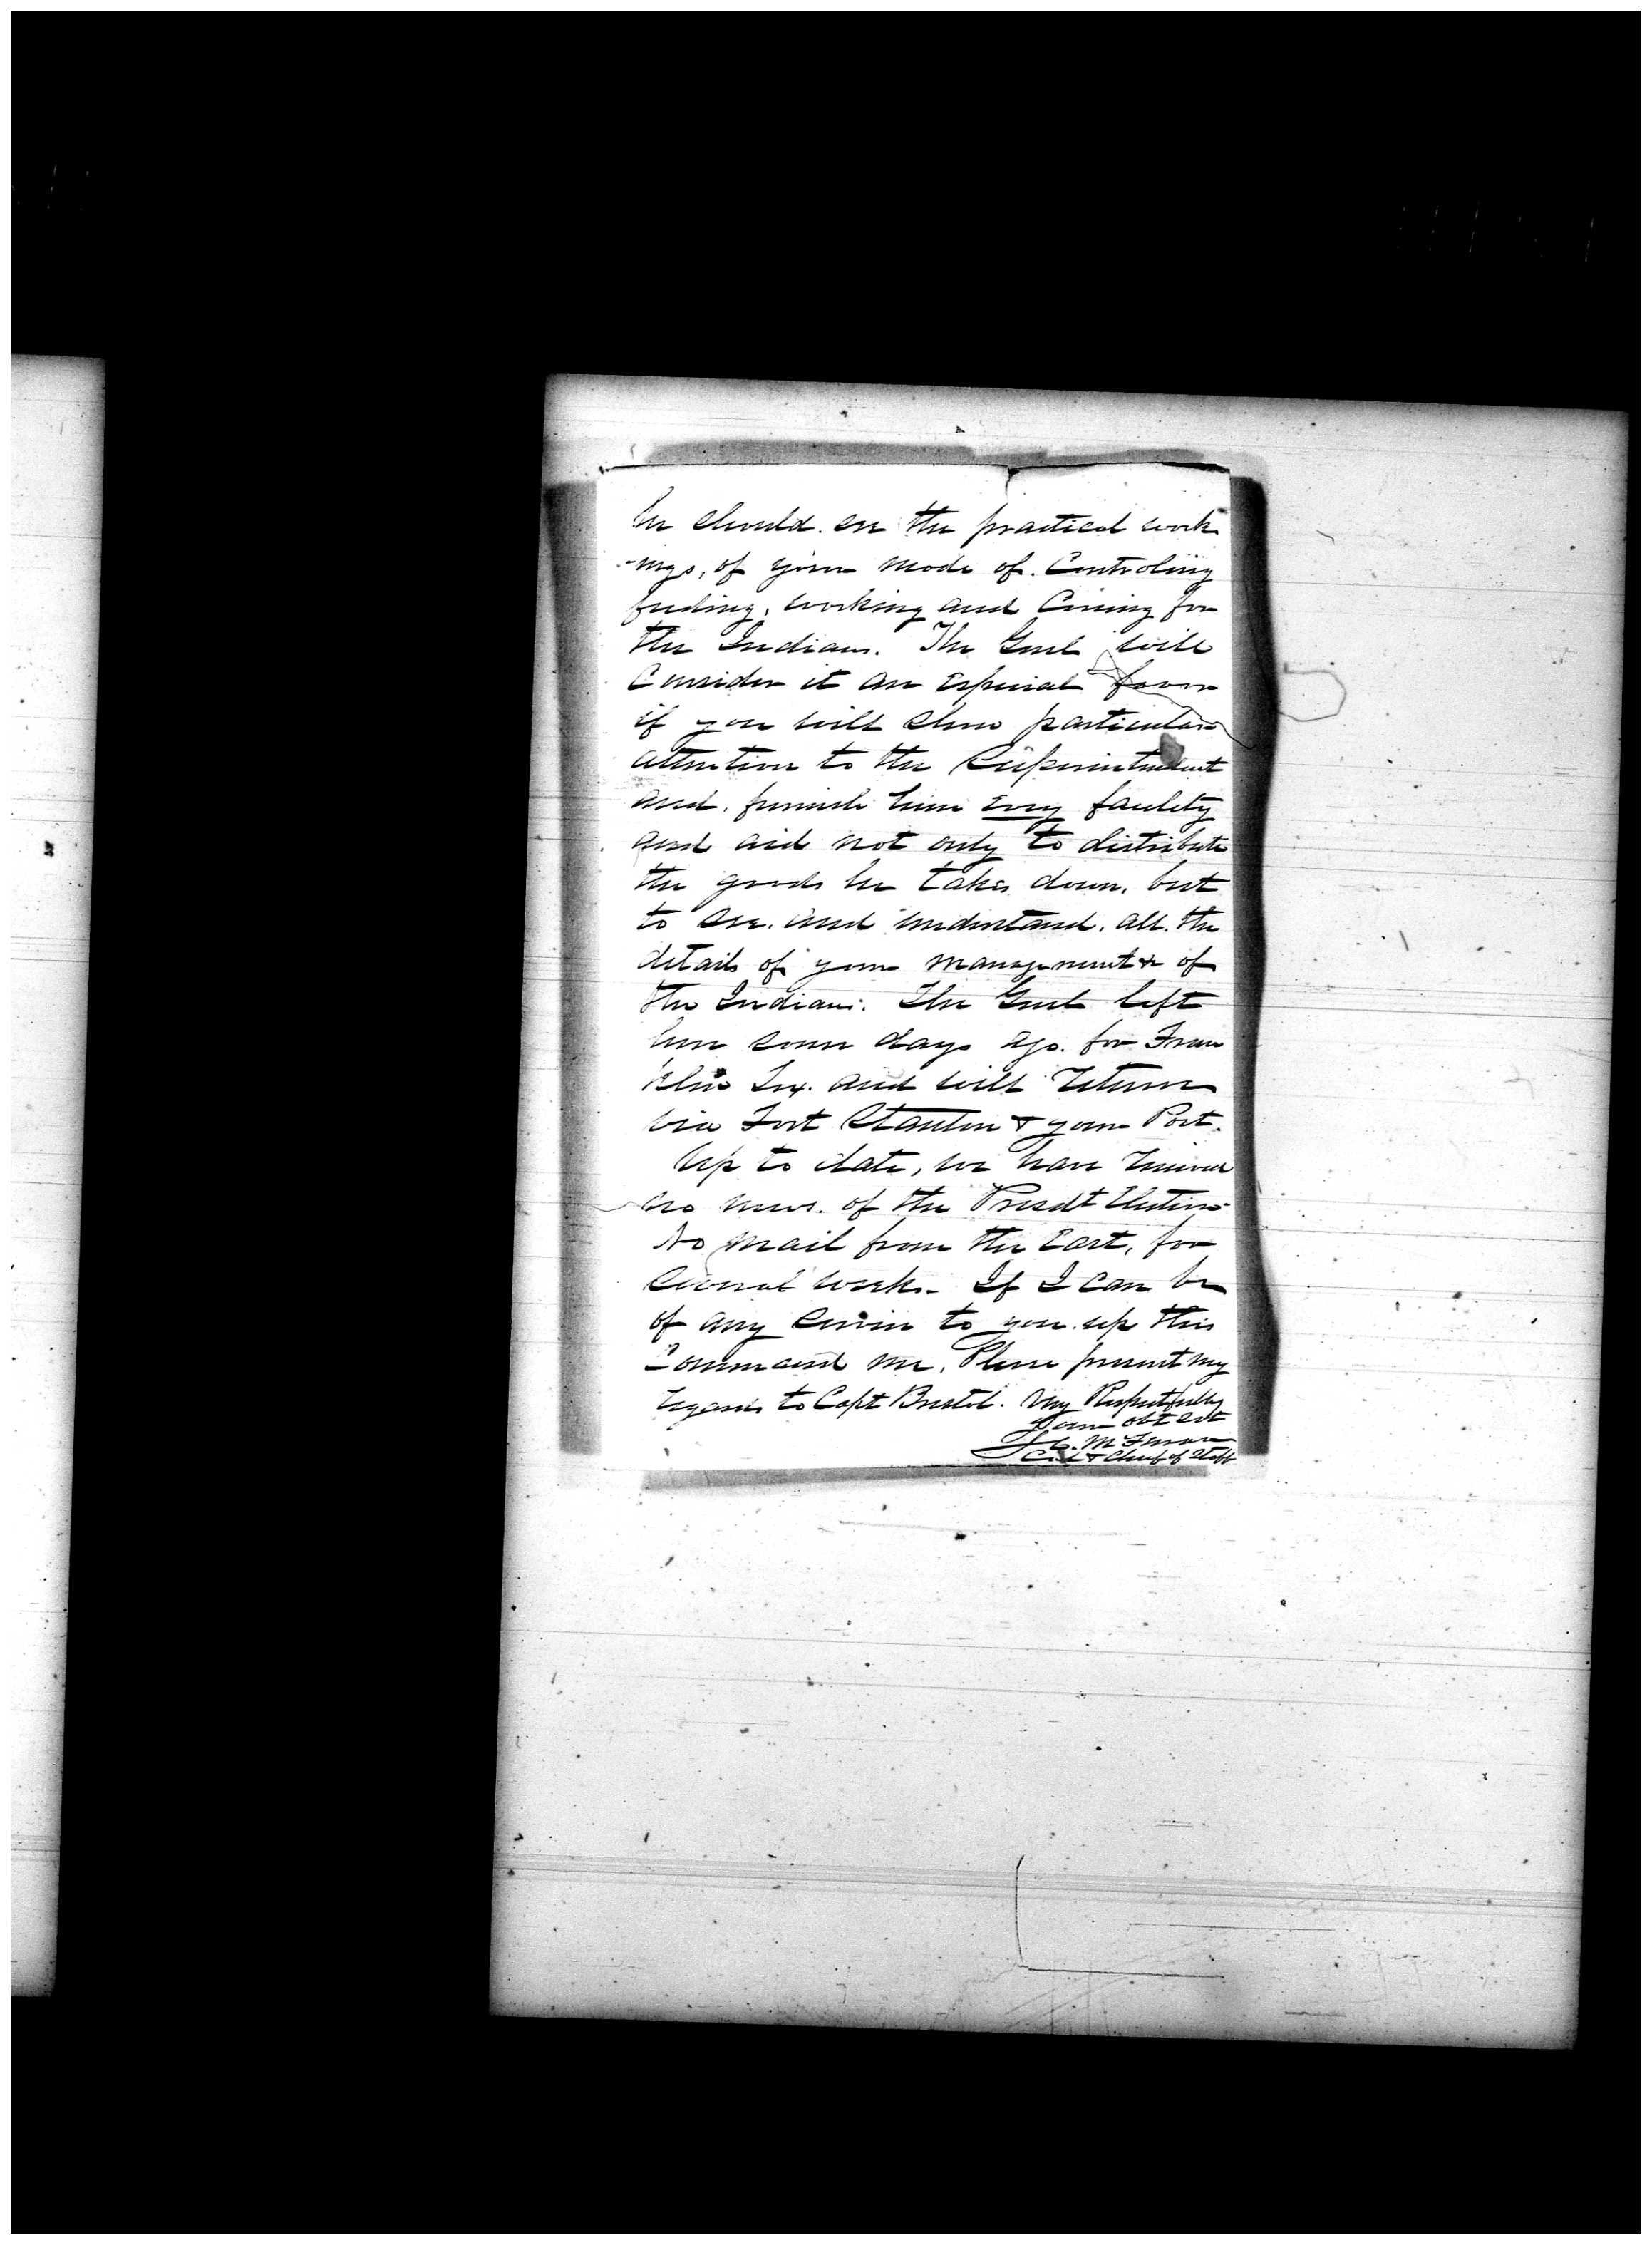 he should see the practical work
-ings, of your mode of Controling
feeding, working and Caring for
the Indians. The Genl will
Consider it an Especial favor
if you will show particular
attention to the Superintendent
and furnish him Every facility
and aid not only to distribute
the goods he takes down, but
to see and understand, all the
details of your management & of
the Indians. The Genl left
here some days ago for Fran
klin Tex. and will return
via Fort Stanton & your Post.
Up to date, we have received
no news of the Presdt Election
No mail from the East, for
several weeks. If I can be
of any service to you up this
Command me, Please present my
regards to Capt Bristol. Very Respectfully
Your obt svt
McFerran
Col & Chief of Staff